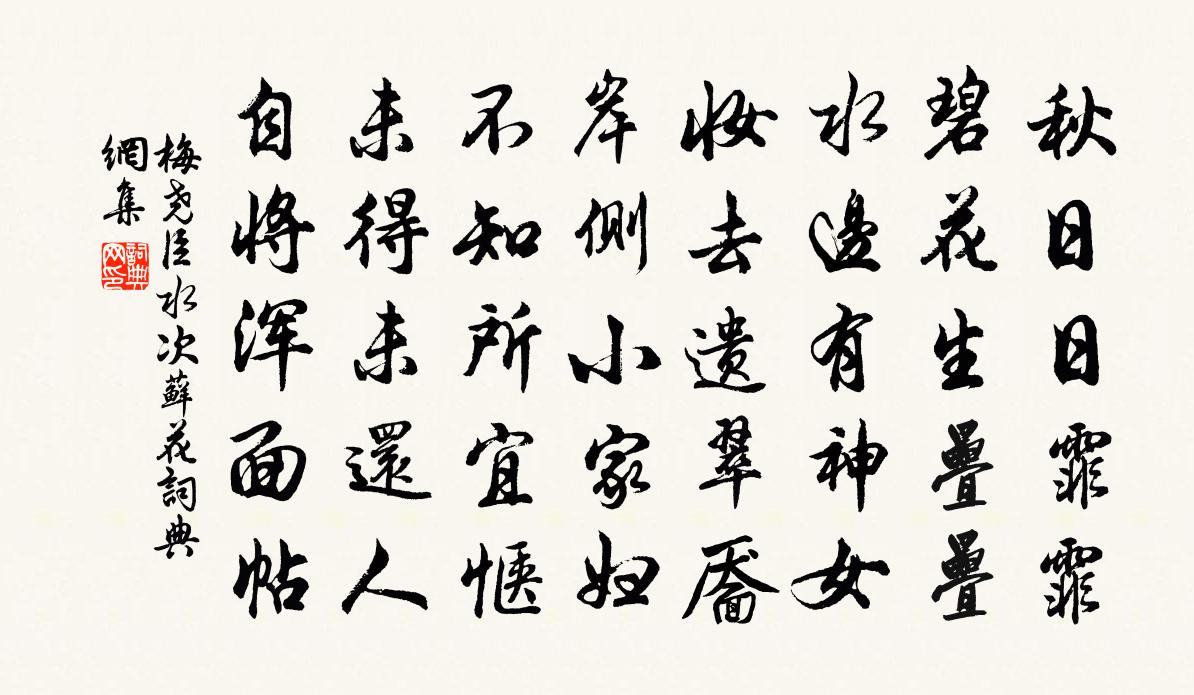 秋日日霏霏
碧花生疊疊
水邊有神女
妝去遺翠靥
岸側小家妇
不知所宜惬
未得未還人
自将浑面帖
梅尧臣水次蘚花詞典
網集
詞典
网印